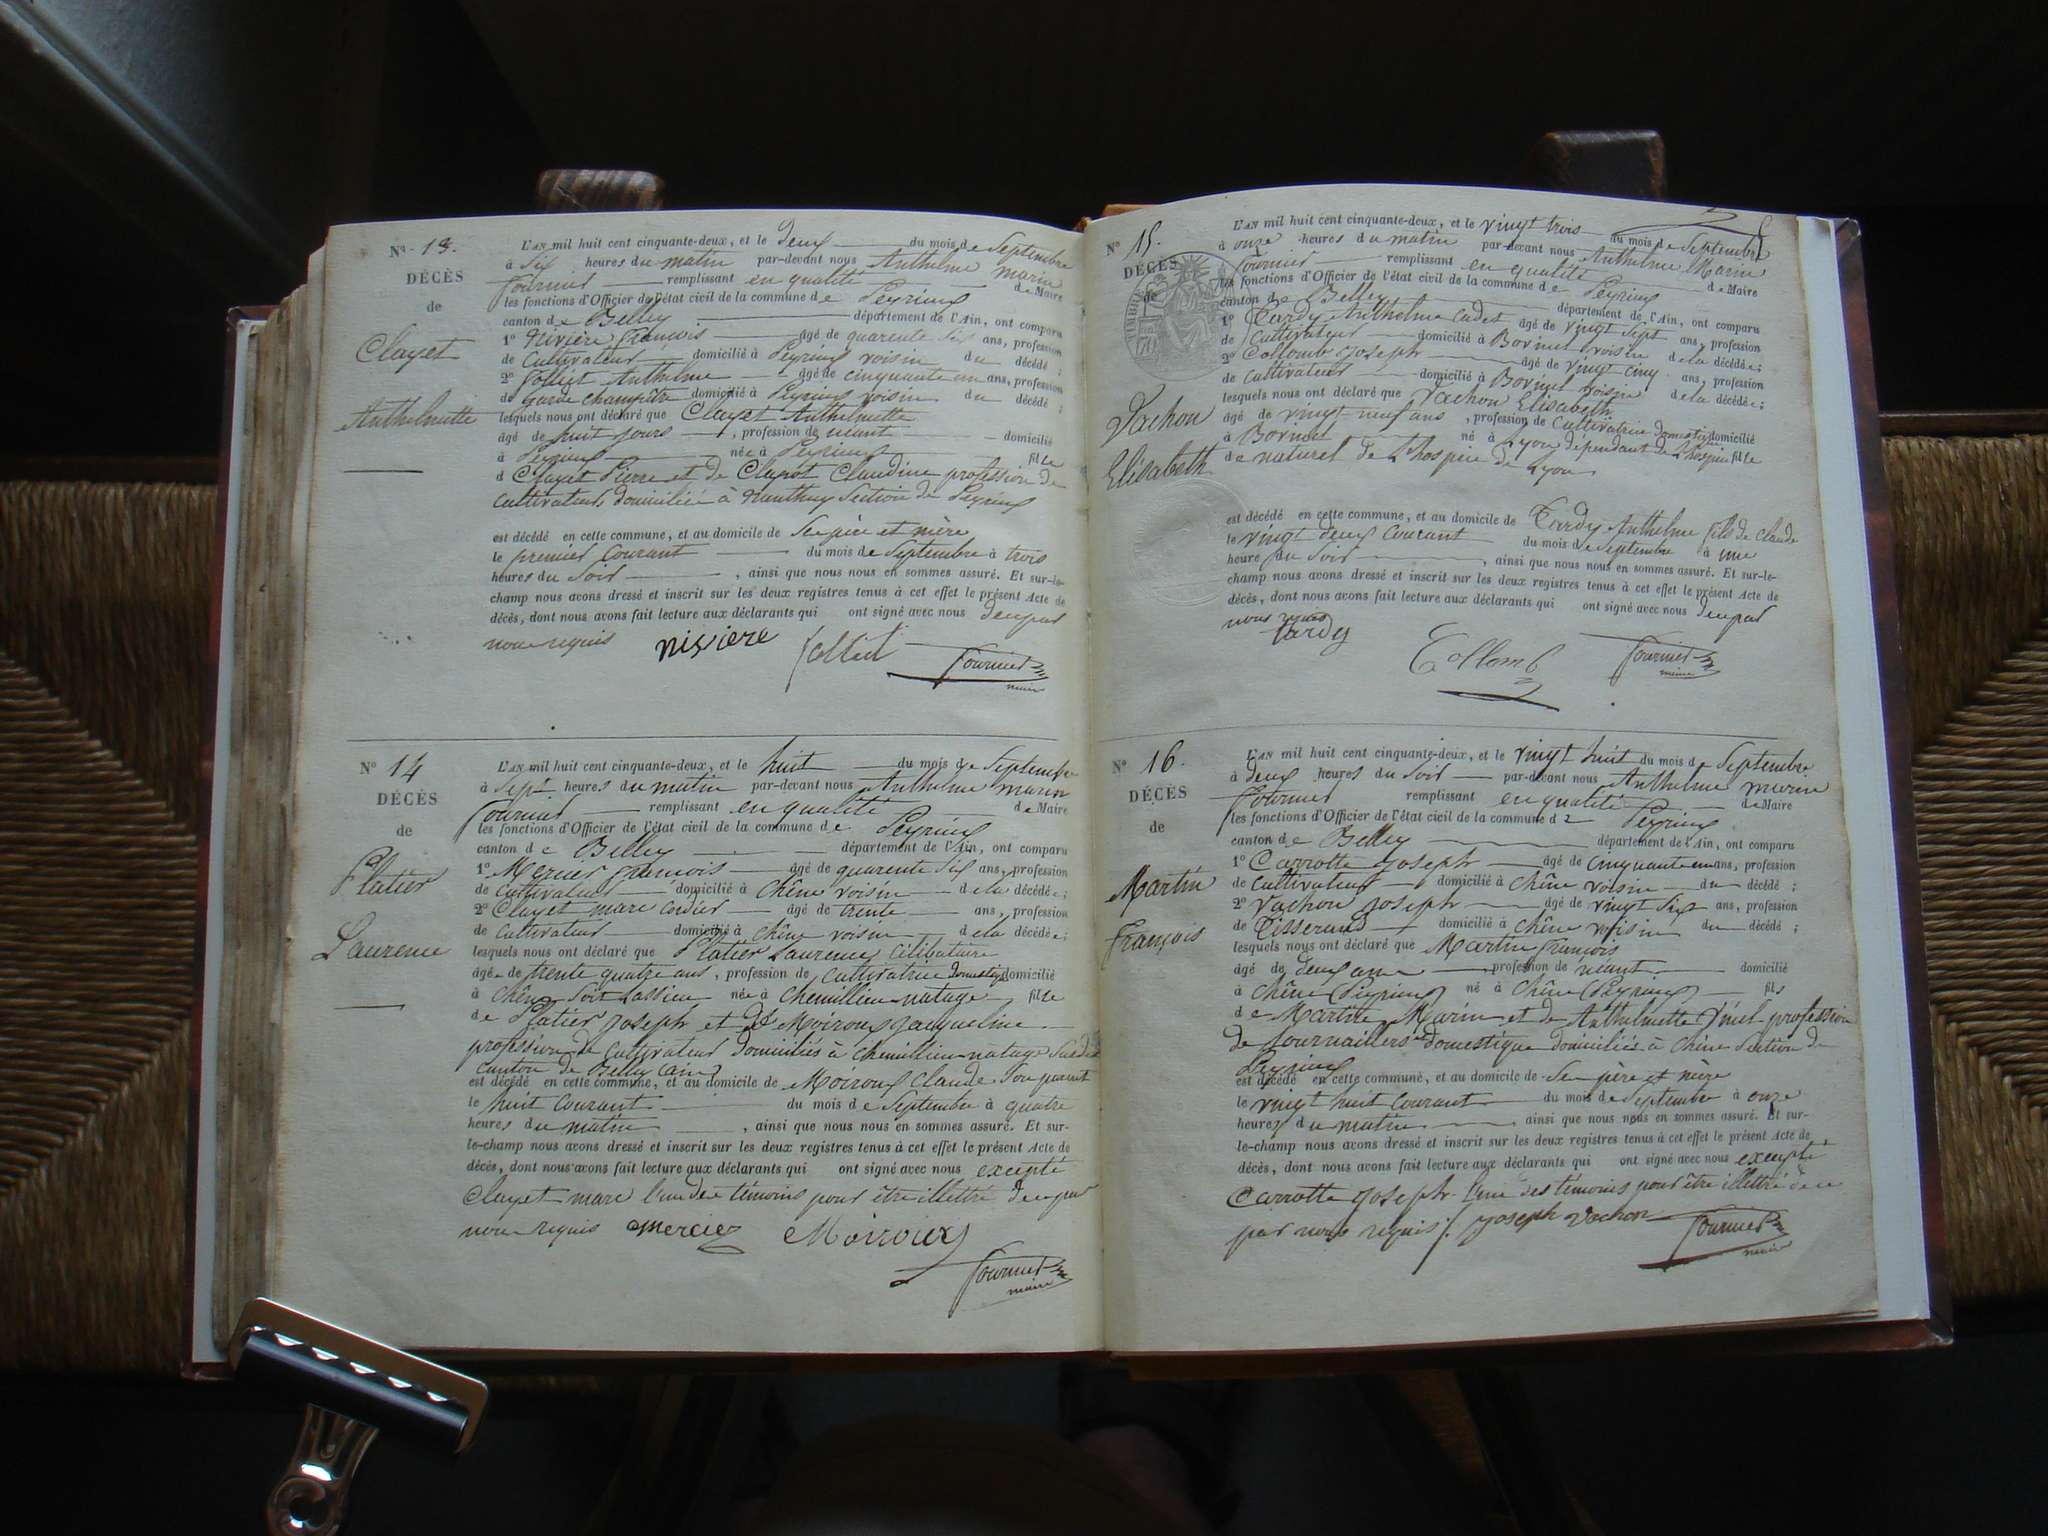 Nº 13.
DÉCÈS
de
Clayet
Anthelmette
L'AN mil huit cent cinquante-deux, et le deux du mois de Septembre
à Six heures du matin par-devant nous Anthelme marin
fournier remplissant en qualité de Maire
les fonctions d'Officier de l'état civil de la commune de Peyrieux
canton de Belley département de l'Ain, ont comparu
1º Nivière françois âgé de quarente Six ans, profession
de Cultivateur domicilié à Peyrieux voisin du décédé ;
2º Anthelme âgé de cinquante un ans, profession
de garde champêtre domicilié à Peyrieux voisin du décédé ;
lesquels nous ont déclaré que Clayet Anthelmette
âgé de huit jours , profession de néant domicilié
à Peyrieux née à Peyrieux fille
d Clayet Pierre et de Clayet Claudine profession de
cultivateurs domiciliée à nanthuy Section de Peyrieux
est décédé en cette commune, et au domicile de Se père et mère
le premier Courant du mois de Septembre à trois
heures du Soir , ainsi que nous nous en sommes assuré. Et sur-le-
champ nous avons dressé et inscrit sur les deux registres tenus à cet effet le présent Acte de
décès, dont nous avons fait lecture aux déclarants qui ont signé avec nous de ce par
nous requis nivière fournier
maire
Nº 14
DÉCÈS
de
Platier
Laurence
L'AN mil huit cent cinquante-deux, et le huit du mois de Septembre
à Sept heures du matin par-devant nous Anthelme marin
fournier remplissant en qualité de Maire
les fonctions d'Officier de l'état civil de la commune de Peyrieux
canton de Belley département de l'Ain, ont comparu
1º Mercier françois âgé de quarente Six ans, profession
de Cultivateur domicilié à Chêne voisin de la décédée ;
2º Clayet marc cordier âgé de trente ans, profession
de Cultivateur domicilié à Chêne voisin de la décédée ;
lesquels nous ont déclaré que Platier Laurence Célibataire
âgée de trente quatre ans , profession de Cultivatrice domestique domicilié
à Chêne née à Chemillieu natage fille
de Platier Joseph et de Moiroux Jacqueline
profession de Cultivateur domiciliés à Chemillieu natage
Canton de Belley (ain)
est décédé en cette commune, et au domicile de Moiroux Claude Son parent
le huit Courant du mois de Septembre à quatre
heures du matin , ainsi que nous nous en sommes assuré. Et sur-
le-champ nous avons dressé et inscrit sur les deux registres tenus à cet effet le présent Acte de
décès, dont nous avons fait lecture aux déclarants qui ont signé avec nous excepté
Clayet marc l'un des témoins pour être illettré de ce par
nous requis mercier Moiroux
fournier
maire
Nº 15.
DÉCÈS
de
Vachon
Elisabeth
L'AN mil huit cent cinquante-deux, et le vingt trois du mois de Septembre
à onze heures du matin par-devant nous Anthelme Marin
fournier remplissant en qualité de Maire
les fonctions d'Officier de l'état civil de la commune de Peyrieux
canton de Belley département de l'Ain, ont comparu
1º Tardy Anthelme cadet âgé de vingt Sept ans, profession
de Cultivateur domicilié à Borinet voisin de la décédée ;
2º Collomb Joseph âgé de vingt cinq ans, profession
de cultivateur domicilié à Borinet voisin de la décédée ;
lesquels nous ont déclaré que Vachon Elisabeth
âgé de vingt neuf ans , profession de Cultivatrice domestique domicilié
à Borinet né à Lyon dépendant de L'hospice fille
de naturel de L'hospice de Lyon
est décédé en cette commune, et au domicile de Tardy Anthelme fils de Claude
le vingt deux Courant du mois de Septembre à une
heure du Soir , ainsi que nous nous en sommes assuré. Et sur-le-
champ nous avons dressé et inscrit sur les deux registres tenus à cet effet le présent Acte de
décès, dont nous avons fait lecture aux déclarants qui ont signé avec nous de ce par
nous requis
tardy
Collomb fournier
maire
Nº 16.
DÉCÈS
de
Martin
François
L'AN mil huit cent cinquante-deux, et le vingt huit du mois de Septembre
à deux heures du Soir par-devant nous Anthelme marin
fournier remplissant en qualité de Maire
les fonctions d'Officier de l'état civil de la commune de Peyrieux
canton de Belley département de l'Ain, ont comparu
1º Carrotte Joseph âgé de cinquante un ans, profession
de Cultivateur domicilié à Chêne voisin du décédé ;
2º Vachon Joseph âgé de vingt Six ans, profession
de Tisserand domicilié à Chêne voisin du décédé ;
lesquels nous ont déclaré que Martin françois
âgé de deux ans , profession de néant domicilié
à Chêne (Peyrieux) né à Chêne (Peyrieux) fils
de Martin Marin et de Anthelmette profession
de Journailliers et domestique domiciliés à Chêne Section de
Peyrieux
est décédé en cette commune, et au domicile de Se père et mère
le vingt huit Courant du mois de Septembre à onze
heures du matin , ainsi que nous nous en sommes assuré. Et sur-
le-champ nous avons dressé et inscrit sur les deux registres tenus à cet effet le présent Acte de
décès, dont nous avons fait lecture aux déclarants qui ont signé avec nous excepté
Carrotte Joseph l'un des témoins pour être illettré de ce
par nous requis. Joseph Vachon fournier
maire